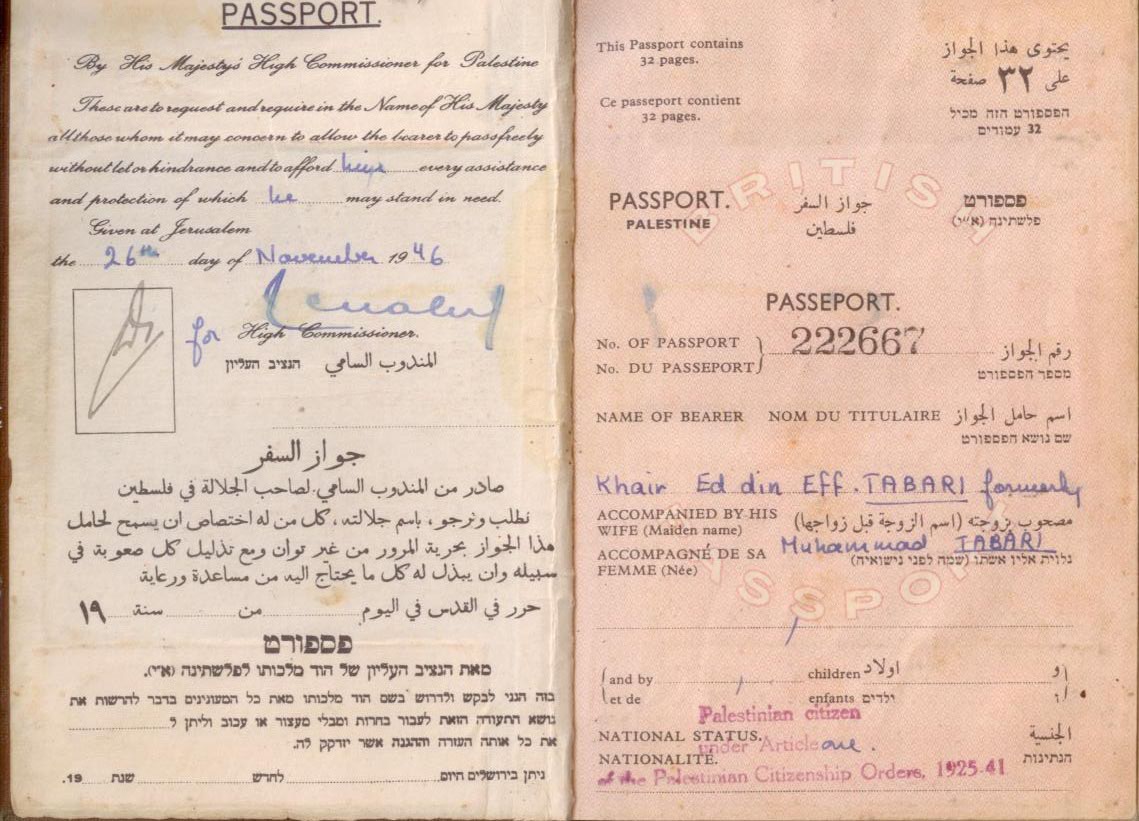 PASSPORT.
By His Majesty's High Commissioner for Palestine
These are to request and require in the Name of His Majesty
all those whom it may concern to allow the bearer to pass freely
without let or hindrance and to afford him every assistance
and protection of which he may stand in need.
Given at Jerusalem
the 26th day of November 1946
for High Commissioner.
المندوب السامي הנציב העליון
جواز السفر
صادر من المندوب السامي لصاحب الجلالة في فلسطين
نطلب ونرجو، باسم جلالته، كل من له اختصاص ان يسمح لحامل
هذا الجواز بحرية المرور من غير توان ومع تذليل كل صعوبة في
سبيله وان يبذل له كل ما يحتاج اليه من مساعدة ورعاية
حرر في القدس في اليوم من سنة ١٩
פספורט
מאת הנציב העליון של הוד מלכותו לפלשתינה (א״י).
בזה הנני לבקש ולדרוש בשם הוד מלכותו מאת כל המעונינים בדבר להרשות את
נושא התעודה הזאת לעבור בחרות ומבלי מעצור או עכוב וליתן ל
את כל אותה העזרה וההגנה אשר יזדקק לה.
ניתן בירושלים היום לחדש שנת 19.
This Passport contains
32 pages.
يحتوى هذا الجواز
على ٣٢ صفحة
Ce passeport contient
32 pages.
הפספורט הזה מכיל
32 עמודים
BRITISH
PASSPORT.
PALESTINE
جواز السفر
فلسطين
פספורט
פלשתינה (א״י)
PASSEPORT.
No. OF PASSPORT
No. DU PASSEPORT
222667
رقم الجواز
מספר הפספורט
NAME OF BEARER NOM DU TITULAIRE اسم حامل الجواز
שם נושא הפספורט
Khair Ed din Eff. TABARI formerly
ACCOMPANIED BY HIS
WIFE (Maiden name)
مصحوب بزوجته (اسم الزوجة قبل زواجها)
Muhammad TABARI
ACCOMPAGNÉ DE SA
FEMME (Née)
נלוית אליו אשתו (שמה לפני נישואיה)
PASSPORT
and by children اولاد و
et de enfants ילדים ו
Palestinian citizen
NATIONAL STATUS. الجنسية
under Article one.
NATIONALITÉ. הנתינות
of the Palestinian Citizenship Orders, 1925-41